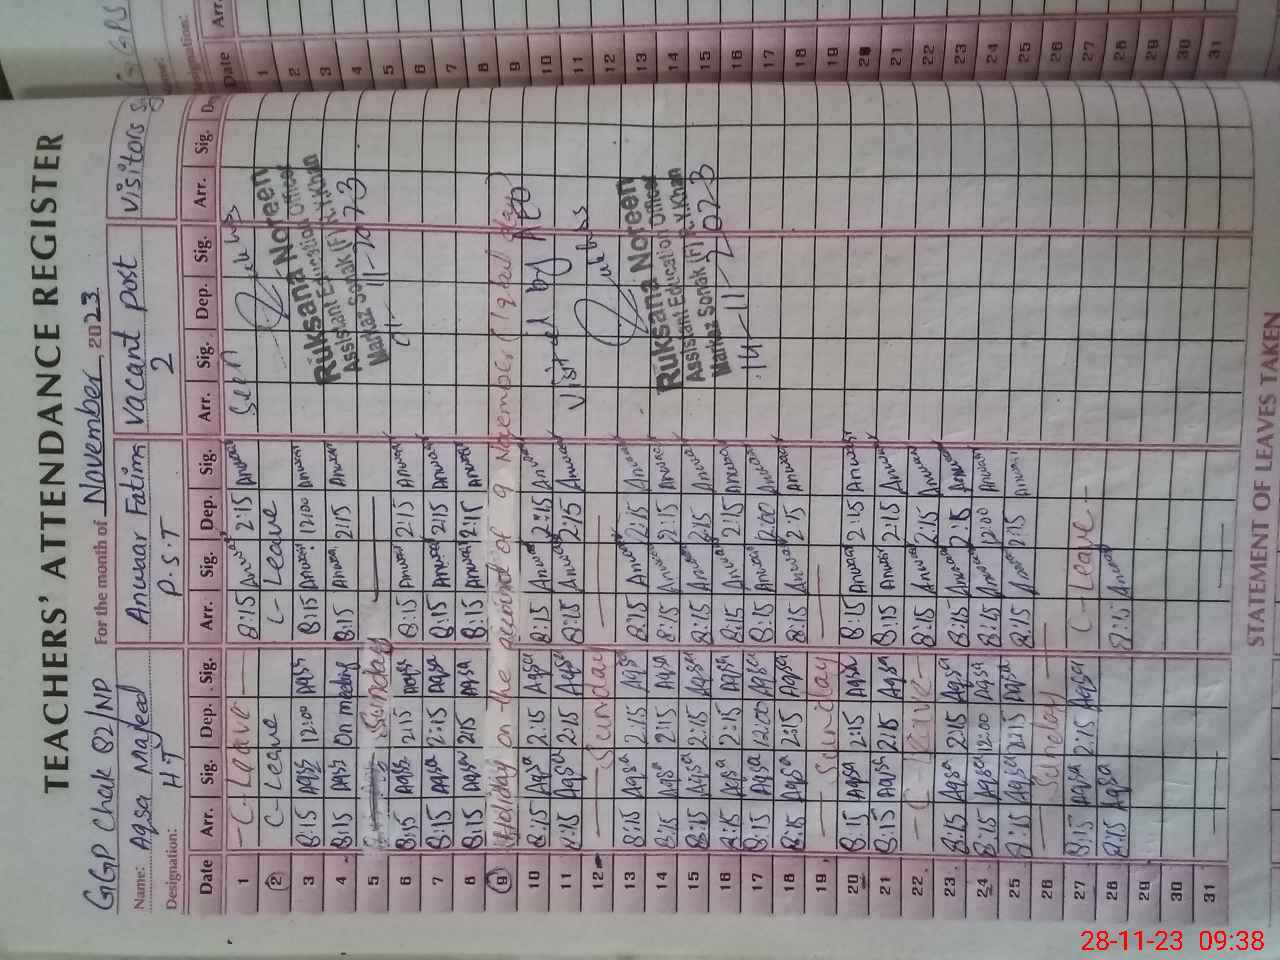 TEACHERS' ATTENDANCE REGISTER
GGP Chak 82/NP For the month of November, 2023
Name: Aqsa Majeed Anwar Fatima Vacant Post Visitors
Designation: HT P.S.T 2
Date Arr. Sig. Dep. Sig. Arr. Sig. Dep. Sig. Arr. Sig. Dep. Sig. Arr. Sig.
1 - C-Leave - 8:15 Anwar 2:15 Anwar Seen
2 C-Leave C-Leave
3 8:15 Aqsa 12:00 Aqsa 8:15 Anwar 12:00 Anwar
4 8:15 Aqsa On meeting 8:15 Anwar 2:15 Anwar
5 Sunday
6 8:15 Aqsa 2:15 Aqsa 8:15 Anwar 2:15 Anwar
7 8:15 Aqsa 2:15 Aqsa 8:15 Anwar 2:15 Anwar
8 8:15 Aqsa 2:15 Aqsa 8:15 Anwar 2:15 Anwar
9 Holiday on the account of 9 November (Iqbal day)
10 8:15 Aqsa 2:15 Aqsa 8:15 Anwar 2:15 Anwar Visited by AEO
11 8:15 Aqsa 2:15 Aqsa 8:15 Anwar 2:15 Anwar
12 Sunday
13 8:15 Aqsa 2:15 Aqsa 8:15 Anwar 2:15 Anwar
14 8:15 Aqsa 2:15 Aqsa 8:15 Anwar 2:15 Anwar
15 8:15 Aqsa 2:15 Aqsa 8:15 Anwar 2:15 Anwar
16 8:15 Aqsa 2:15 Aqsa 8:15 Anwar 2:15 Anwar
17 8:15 Aqsa 12:00 Aqsa 8:15 Anwar 12:00 Anwar
18 8:15 Aqsa 2:15 Aqsa 8:15 Anwar 2:15 Anwar
19 Sunday
20 8:15 Aqsa 2:15 Aqsa 8:15 Anwar 2:15 Anwar
21 8:15 Aqsa 2:15 Aqsa 8:15 Anwar 2:15 Anwar
22 - C-Leave - 8:15 Anwar 2:15 Anwar
23 8:15 Aqsa 2:15 Aqsa 8:15 Anwar 2:15 Anwar
24 8:15 Aqsa 12:00 Aqsa 8:15 Anwar 12:00 Anwar
25 8:15 Aqsa 2:15 Aqsa 8:15 Anwar 2:15 Anwar
26 Sunday
27 8:15 Aqsa 2:15 Aqsa C-Leave -
28 8:15 Aqsa 8:15 Anwar
29
30
31
Ruksana Noreen
Assistant Education Officer
Markaz Sonak (F) R.Y.Khan
01-11-2023
Ruksana Noreen
Assistant Education Officer
Markaz Sonak (F) R.Y.Khan
14-11-2023
STATEMENT OF LEAVES TAKEN
Date Arr.
1
2
3
4
5
6
7
8
9
10
11
12
13
14
15
16
17
18
19
20
21
22
23
24
25
26
27
28
29
30
31
28-11-23 09:38